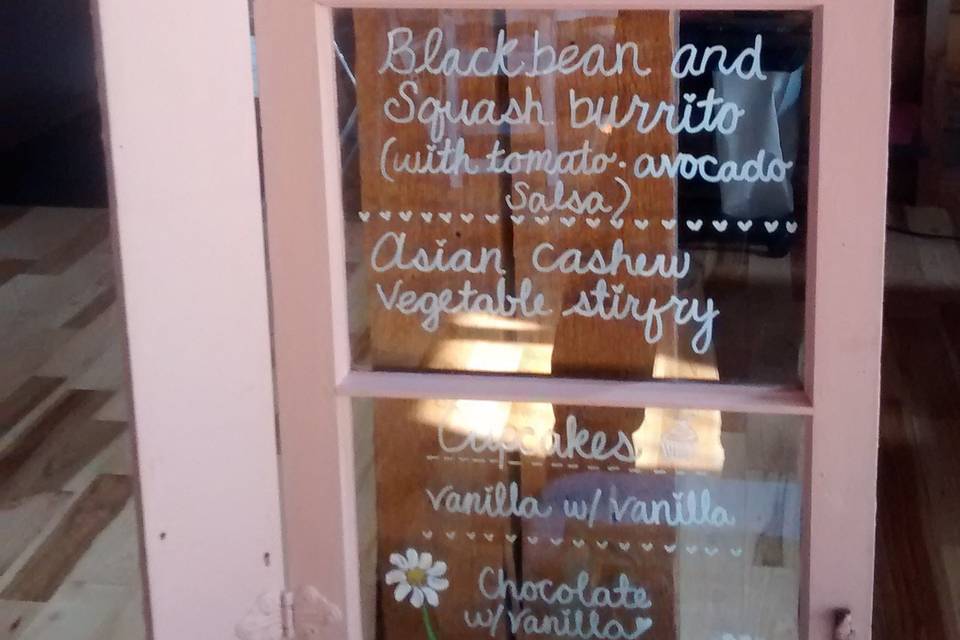 Black bean and
Squash burrito
(with tomato. avocado
Salsa)
Asian Cashew
Vegetable stirfry
Cupcakes
Vanilla w/ Vanilla
Chocolate
w/ Vanilla